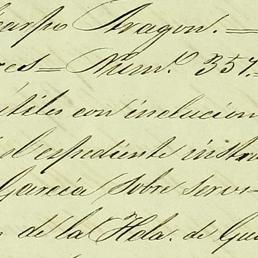 carpo Aragon. —
res — Num.º 357. —
útiles con inclucion
el espediente instru
Garcia sobre serv
n de la Hda. de Gu